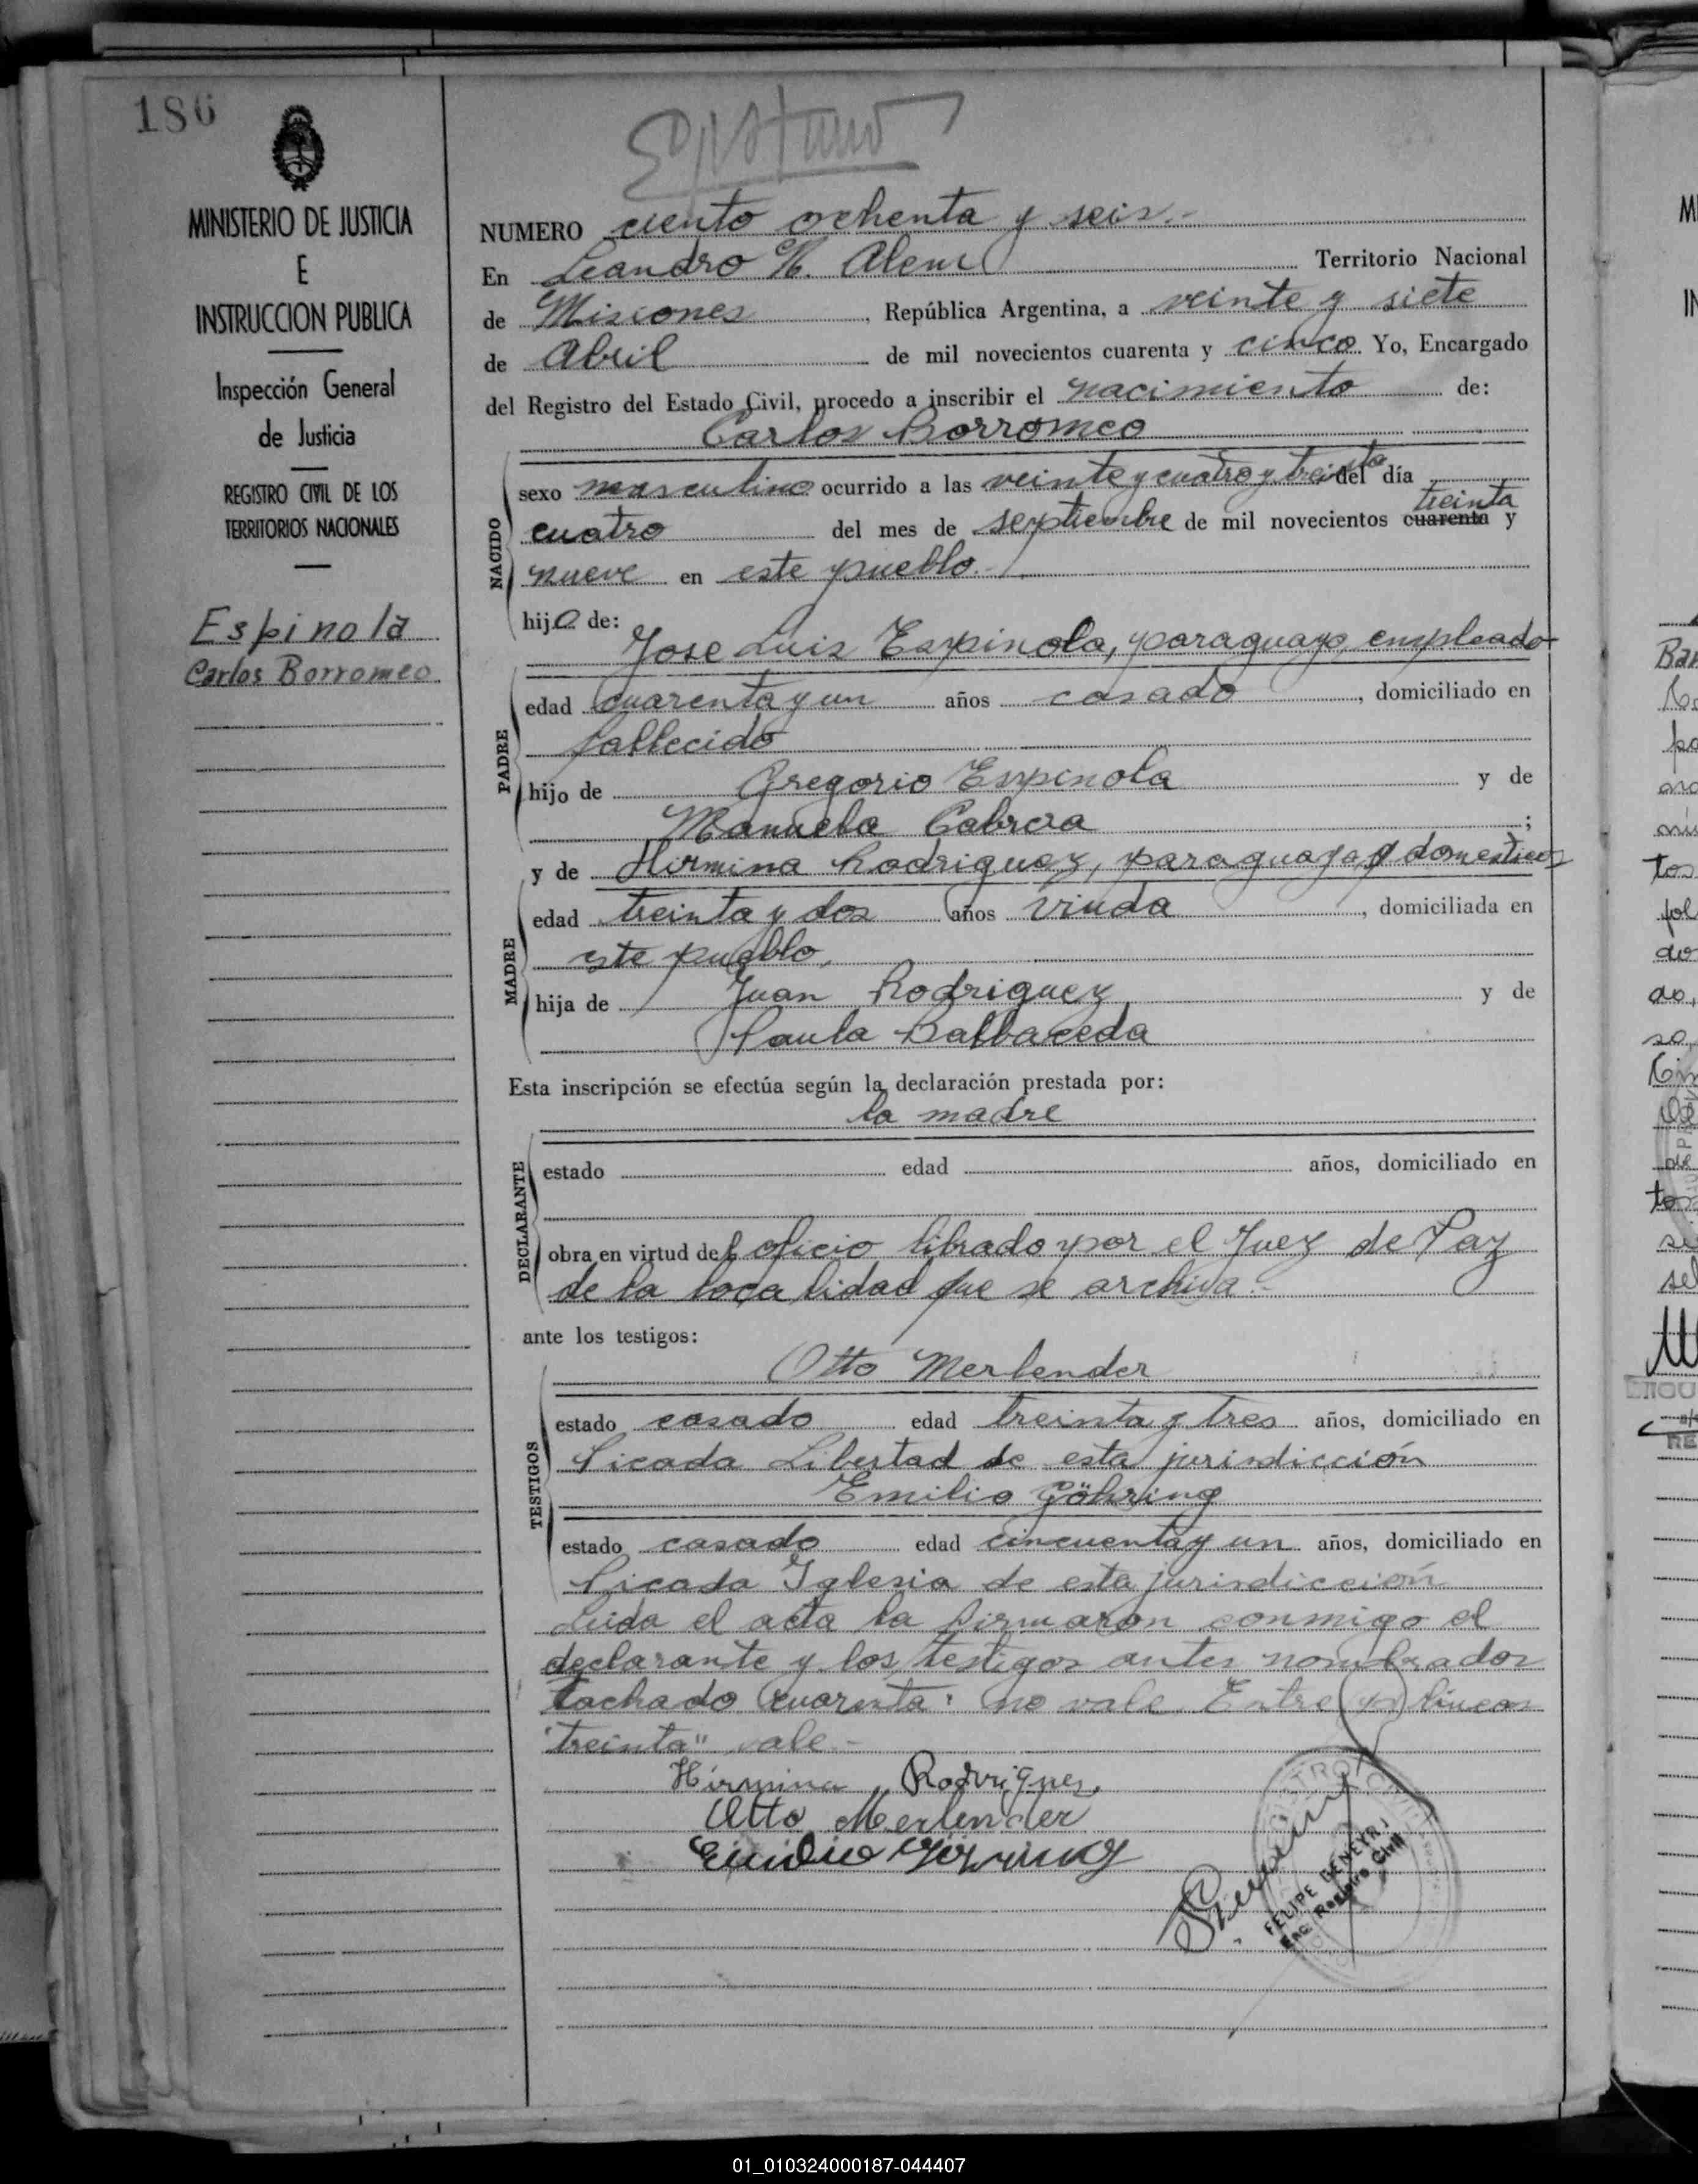 186
MINISTERIO DE JUSTICIA
E
INSTRUCCION PUBLICA
Inspección General
de Justicia
REGISTRO CIVIL DE LOS
TERRITORIOS NACIONALES
Espinola
Carlos Borromeo
NUMERO ciento ochenta y seis.-
En Leandro N. Alem Territorio Nacional
de Misiones, República Argentina, a veinte y siete
de Abril de mil novecientos cuarenta y cinco Yo, Encargado
del Registro del Estado Civil, procedo a inscribir el nacimiento de:
Carlos Borromeo
NACIDO
sexo masculino ocurrido a las veinte y cuatro y treinta del día
treinta
cuatro del mes de septiembre de mil novecientos cuarenta y
nueve en este pueblo.-
hijo de:
PADRE
Jose Luis Espinola, paraguayo, empleado
edad cuarenta y un años casado, domiciliado en
fallecido
hijo de Gregorio Espinola y de
Manuela Cabrera;
MADRE
y de Hirmina Rodriguez, paraguaya, domesticos
edad treinta y dos años viuda, domiciliada en
este pueblo,
hija de Juan Rodriguez y de
Paula Balbaceda
Esta inscripción se efectúa según la declaración prestada por:
la madre
DECLARANTE
estado edad años, domiciliado en
obra en virtud del oficio librado por el Juez de Paz
de la localidad que se archiva.-
ante los testigos:
TESTIGOS
Otto Merlender
estado casado edad treinta y tres años, domiciliado en
Picada Libertad de esta jurisdicción
Emilio Göhring
estado casado edad cincuenta y un años, domiciliado en
Picada Iglesia de esta jurisdicción
Leida el acta la firmaron conmigo el
declarante y los testigos antes nombrados
Tachado "cuarenta" no vale. Entre líneas
"treinta" vale.-
Hirmina Rodrigues,
Otto Merlender
Emilio Göhring
FELIPE DENEYRJ
Enc. Registro Civil
01_010324000187-044407